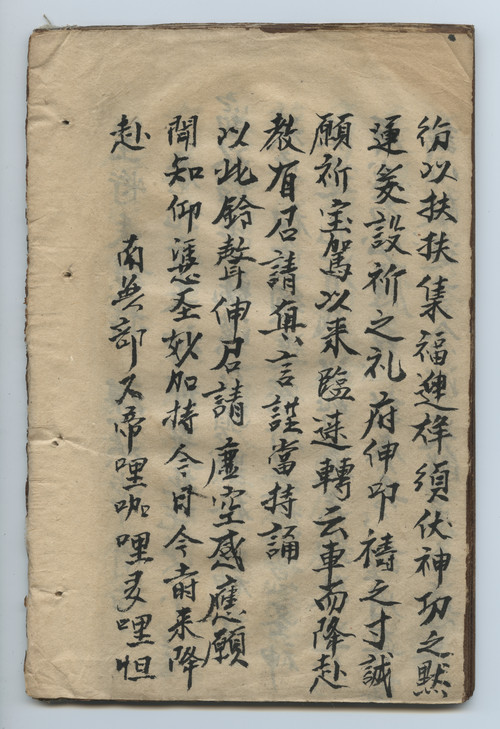 以扶扶集福迎祥須伏神功之黙
運爰設祈之礼府伸叩禱之寸誠
願祈宝駕以来臨速轉云車而降赴
教有召請真言謹當持誦
以此鈴聲伸召請 虚空感應願
聞知仰憑圣妙加持今日今時来降
赴 南無部不帝哩咖哩多哩怛